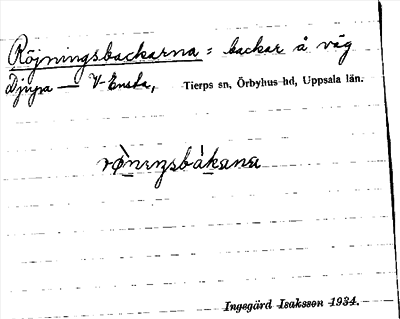 Röjningsbackarna = backar å väg
Djupa — V-Ensta, Tierps sn, Örbyhus hd, Uppsala län.
Ingegärd Isaksson 1934.